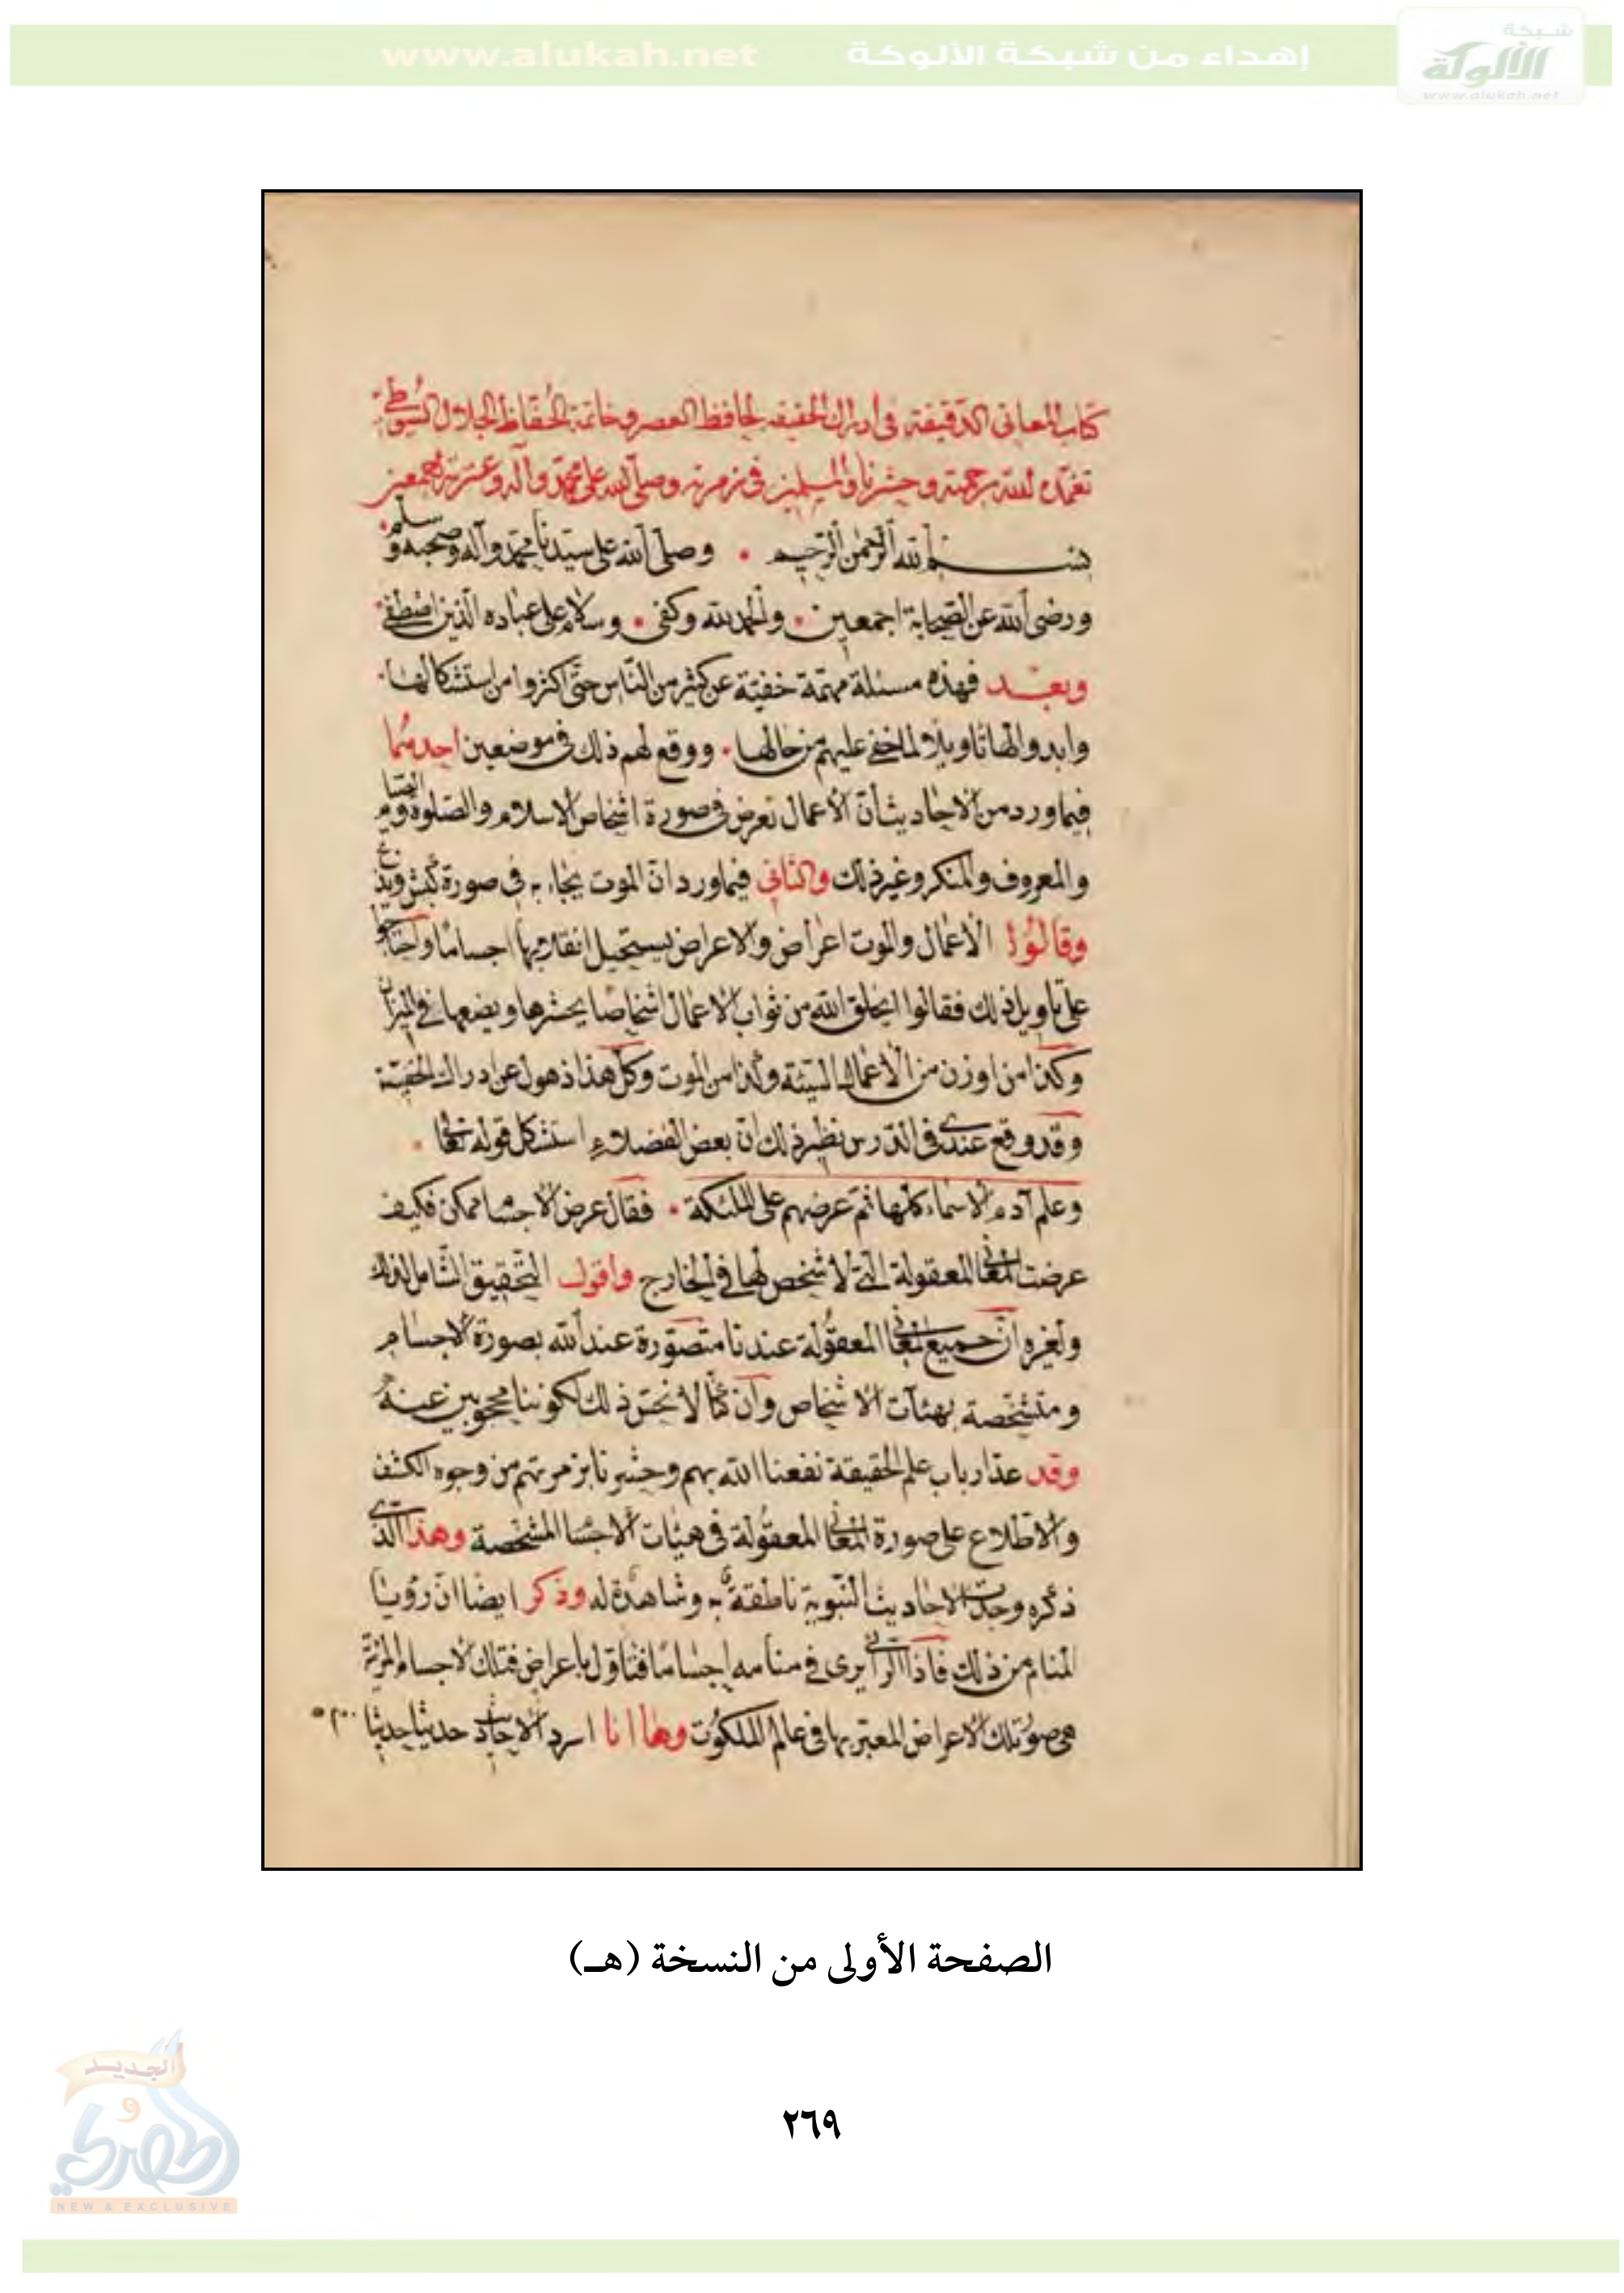 شبكة
الألوكة
www.alukah.net
إهداء من شبكة الألوكة www.alukah.net
كتاب المعاني الدقيقة في أدراك الحقيقة لحافظ العصر وخاتمة الحفاظ الجلال السيوطي
تغمده الله برحمته وحشرنا والمسلمين في زمرته وصلى الله على محمد وآله وعترته اجمعين
بسم الله الرحمن الرحيم • وصلى الله على سيدنا محمد وآله وصحبه وسلم
ورضى الله عن الصحابة اجمعين • والحمد لله وكفى • وسلام على عباده الذين اصطفى
وبعد فهذه مسئلة مهمة خفية عن كثير من الناس حتى اكثروا من استشكالها •
وابدوا لها تاويلا لما خفى عليهم من حالها • ووقع لهم ذلك في موضعين احدهما
فيما ورد من الاحاديث أن الأعمال تعرض في صورة اشخاص الاسلام والصلوة والصيام
والمعروف والمنكر وغير ذلك والثاني فيما ورد ان الموت يجاء به في صورة كبش ويذبح
وقالوا الاعمال والموت اعراض والاعراض يستحيل انقلابها اجساما واحتاجوا
على تاويل ذلك فقالوا يخلق الله من ثواب الاعمال اشخاصا يحشرها ويضعها في الميزان
وكذا من اوزن من الاعمال السيئة وكذا من الموت وكل هذا ذهول عن ادراك الحقيقة
وقد وقع عندي في الدرس نظير ذلك ان بعض الفضلاء استشكل قوله تعالى •
وعلم آدم الاسماء كلها ثم عرضهم على الملئكة • فقال عرض الاجسام ممكن فكيف
عرضت المعاني المعقولة التي لا تشخص لها في الخارج واقول التحقيق الشامل لذلك
ولغيره ان جميع المعاني المعقولة عندنا متصورة عند الله بصورة الاجسام
ومتشخصة بهيئات الاشخاص وان كنا لا نحس ذلك لكوننا محجوبين عنه
وقد عد ارباب علم الحقيقة نفعنا الله بهم وحشرنا بزمرتهم من وجوه الكشف
والاطلاع على صورة المعاني المعقولة في هيئات الاجسام المشخصة وهذا الذي
ذكره وجدت الاحاديث النبوية ناطقة به وشاهدة له وذكر ايضا ان رؤيا
المنام من ذلك فاذا الرائي يرى في منامه اجساما فتاول باعراض فتلك الاجسام المرئية
هي صور تلك الاعراض المعبر بها في عالم الملكوت وها انا اسرد الاحاديث حديثا حديثا
الصفحة الأولى من النسخة (هـ)
٢٦٩
الجديد
و
الحصري
NEW & EXCLUSIVE